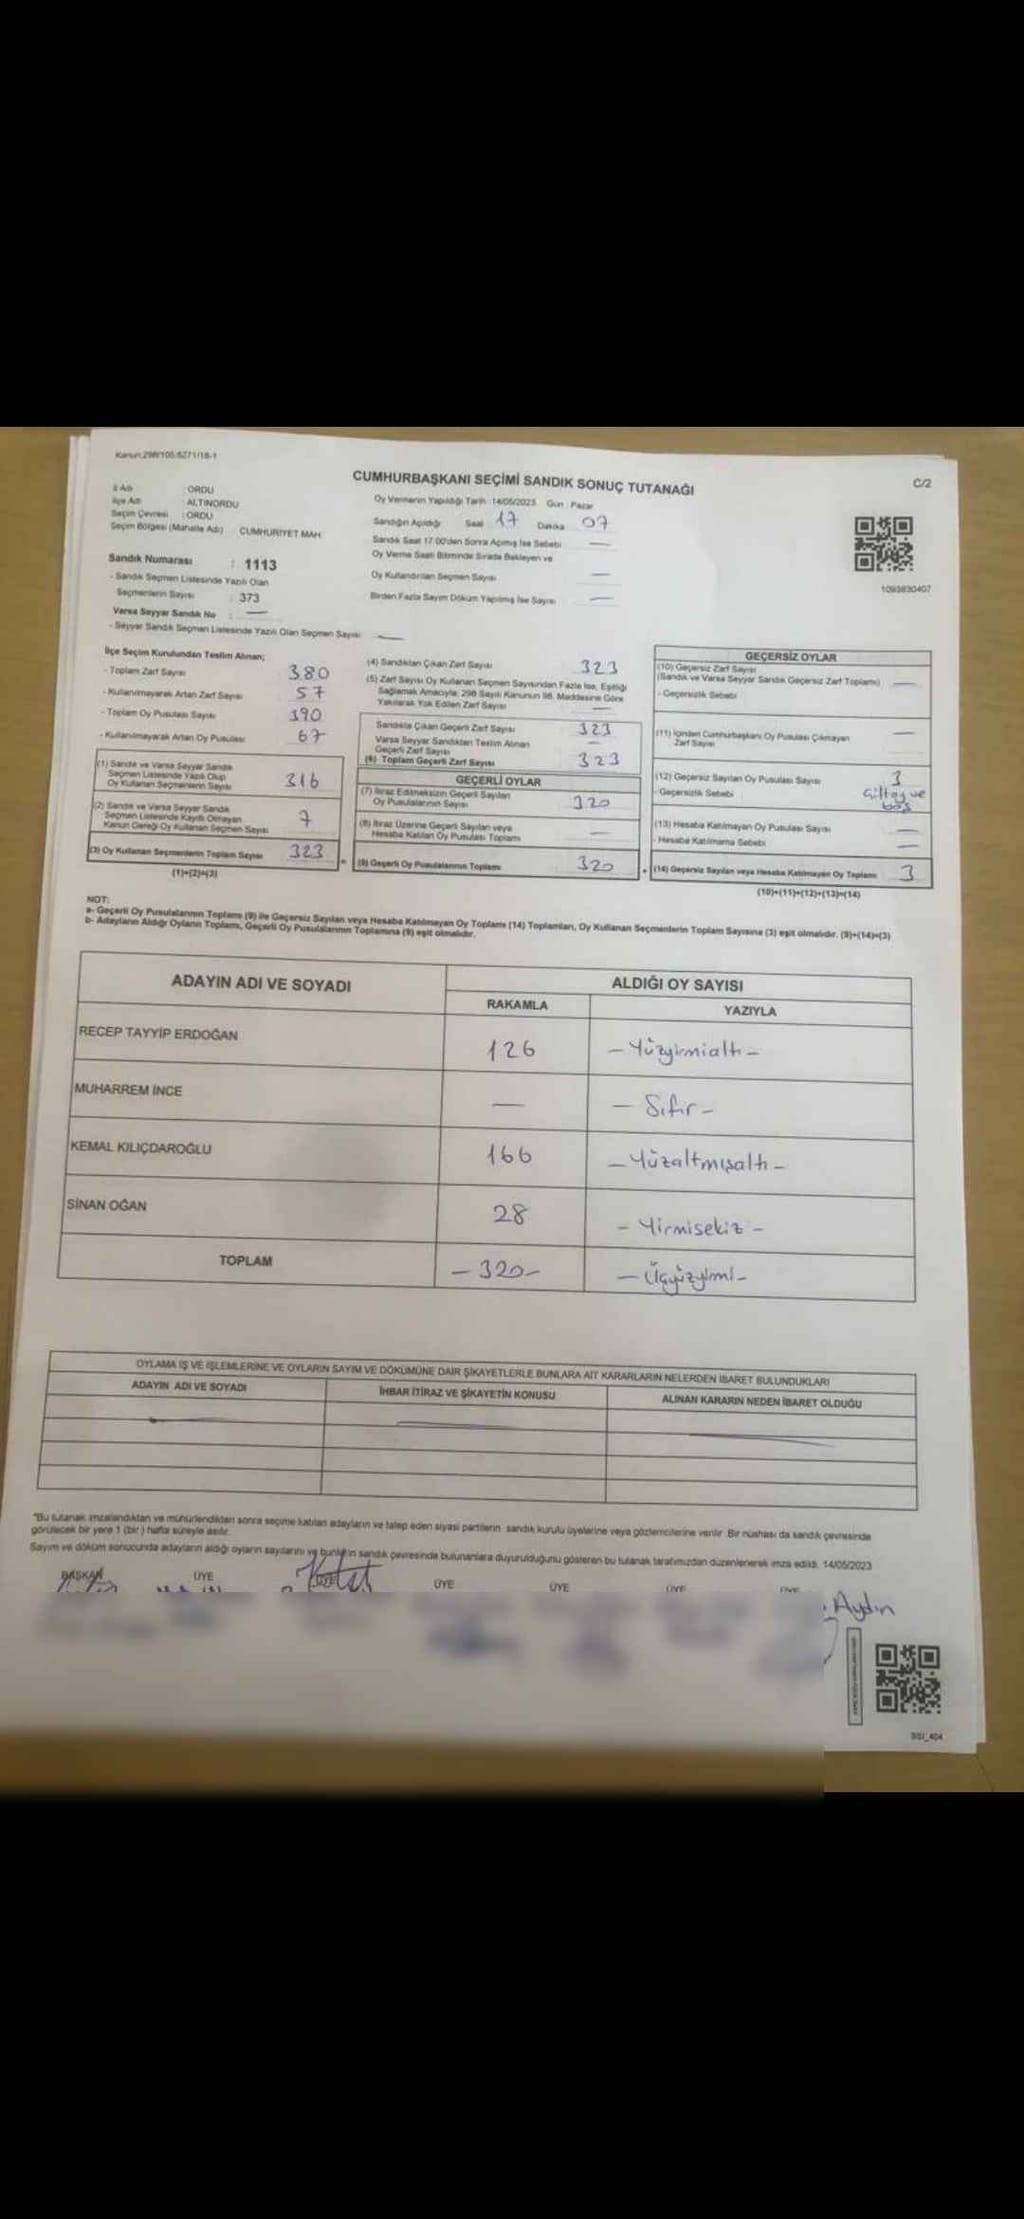 Kanun:298/105;6271/18-1
CUMHURBAŞKANI SEÇİMİ SANDIK SONUÇ TUTANAĞI
C/2
İl Adı : ORDU
İlçe Adı : ALTINORDU
Seçim Çevresi : ORDU
Seçim Bölgesi (Mahalle Adı) : CUMHURİYET MAH.
Oy Vermenin Yapıldığı Tarih :14/05/2023 Gün : Pazar
Sandığın Açıldığı Saat 17 Dakika 07
Sandık Saat 17:00'den Sonra Açılmış İse Sebebi —
Oy Verme Saati Bitiminde Sırada Bekleyen ve
Oy Kullandırılan Seçmen Sayısı —
Birden Fazla Sayım Döküm Yapılmış İse Sayısı —
1093830407
Sandık Numarası : 1113
- Sandık Seçmen Listesinde Yazılı Olan
Seçmenlerin Sayısı : 373
Varsa Seyyar Sandık No : —
- Seyyar Sandık Seçmen Listesinde Yazılı Olan Seçmen Sayısı —
İlçe Seçim Kurulundan Teslim Alınan;
- Toplam Zarf Sayısı 380
- Kullanılmayarak Artan Zarf Sayısı 57
- Toplam Oy Pusulası Sayısı 390
- Kullanılmayarak Artan Oy Pusulası 67
(1) Sandık ve Varsa Seyyar Sandık
Seçmen Listesinde Yazılı Olup
Oy Kullanan Seçmenlerin Sayısı 316
(2) Sandık ve Varsa Seyyar Sandık
Seçmen Listesinde Kayıtlı Olmayan
Kanun Gereği Oy Kullanan Seçmen Sayısı 7
(3) Oy Kullanan Seçmenlerin Toplam Sayısı 323
(1)+(2)=(3)
(4) Sandıktan Çıkan Zarf Sayısı 323
(5) Zarf Sayısı Oy Kullanan Seçmen Sayısından Fazla İse, Eşitliği
Sağlamak Amacıyla; 298 Sayılı Kanunun 98. Maddesine Göre
Yakılarak Yok Edilen Zarf Sayısı —
Sandıkta Çıkan Geçerli Zarf Sayısı 323
Varsa Seyyar Sandıktan Teslim Alınan
Geçerli Zarf Sayısı —
(6) Toplam Geçerli Zarf Sayısı 323
GEÇERLİ OYLAR
(7) İtiraz Edilmeksizin Geçerli Sayılan
Oy Pusulalarının Sayısı 320
(8) İtiraz Üzerine Geçerli Sayılan veya
Hesaba Katılan Oy Pusulası Toplamı —
= (9) Geçerli Oy Pusulalarının Toplamı 320
GEÇERSİZ OYLAR
(10) Geçersiz Zarf Sayısı
(Sandık ve Varsa Seyyar Sandık Geçersiz Zarf Toplamı) —
- Geçersizlik Sebebi
(11) İçinden Cumhurbaşkanı Oy Pusulası Çıkmayan
Zarf Sayısı —
(12) Geçersiz Sayılan Oy Pusulası Sayısı 3
- Geçersizlik Sebebi Çiftoy ve
boş
(13) Hesaba Katılmayan Oy Pusulası Sayısı —
- Hesaba Katılmama Sebebi —
+ (14) Geçersiz Sayılan veya Hesaba Katılmayan Oy Toplamı 3
(10)+(11)+(12)+(13)=(14)
NOT:
a- Geçerli Oy Pusulalarının Toplamı (9) ile Geçersiz Sayılan veya Hesaba Katılmayan Oy Toplamı (14) Toplamları, Oy Kullanan Seçmenlerin Toplam Sayısına (3) eşit olmalıdır. (9)+(14)=(3)
b- Adayların Aldığı Oyların Toplamı, Geçerli Oy Pusulalarının Toplamına (9) eşit olmalıdır.
ADAYIN ADI VE SOYADI
ALDIĞI OY SAYISI
RAKAMLA YAZIYLA
RECEP TAYYİP ERDOĞAN 126 — Yüzyirmialtı —
MUHARREM İNCE — — Sıfır —
KEMAL KILIÇDAROĞLU 166 — Yüzaltmışaltı —
SİNAN OĞAN 28 — Yirmisekiz —
TOPLAM — 320 — — Üçyüzyirmi —
OYLAMA İŞ VE İŞLEMLERİNE VE OYLARIN SAYIM VE DÖKÜMÜNE DAİR ŞİKAYETLERLE BUNLARA AİT KARARLARIN NELERDEN İBARET BULUNDUKLARI
ADAYIN ADI VE SOYADI İHBAR İTİRAZ VE ŞİKAYETİN KONUSU ALINAN KARARIN NEDEN İBARET OLDUĞU
*Bu tutanak imzalandıktan ve mühürlendikten sonra seçime katılan adayların ve talep eden siyasi partilerin sandık kurulu üyelerine veya gözlemcilerine verilir. Bir nüshası da sandık çevresinde
görülecek bir yere 1 (bir) hafta süreyle asılır.
Sayım ve döküm sonucunda adayların aldığı oyların sayılarını ve bunların sandık çevresinde bulunanlara duyurulduğunu gösteren bu tutanak tarafımızdan düzenlenerek imza edildi. 14/05/2023
BAŞKAN ÜYE ÜYE ÜYE ÜYE ÜYE ÜYE
Aydın
SSI_404